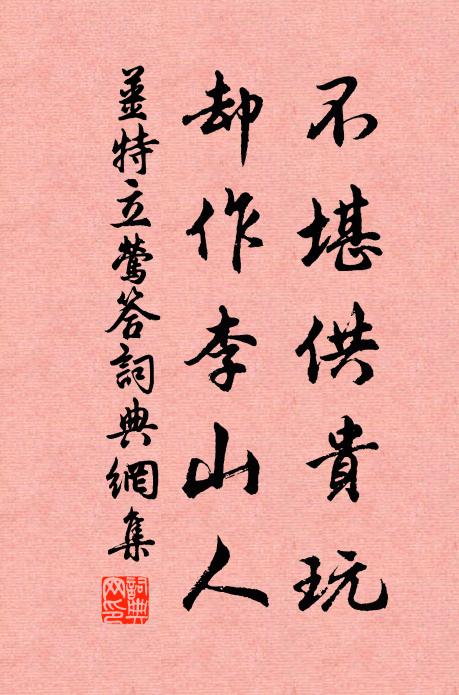 不堪供貴玩
却作李山人
薑特立鶯答詞典網集
詞典
网印